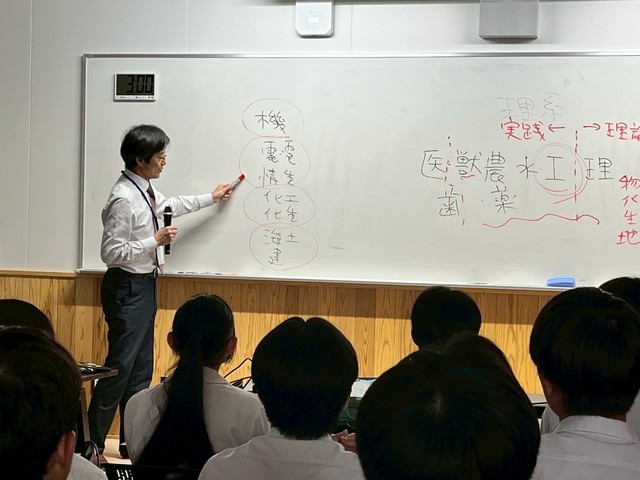 3:00
機
電電
情生
化工
化生
海土
建
理系
実践← →理論
医獣農水工理
歯 薬
物
化
生
地